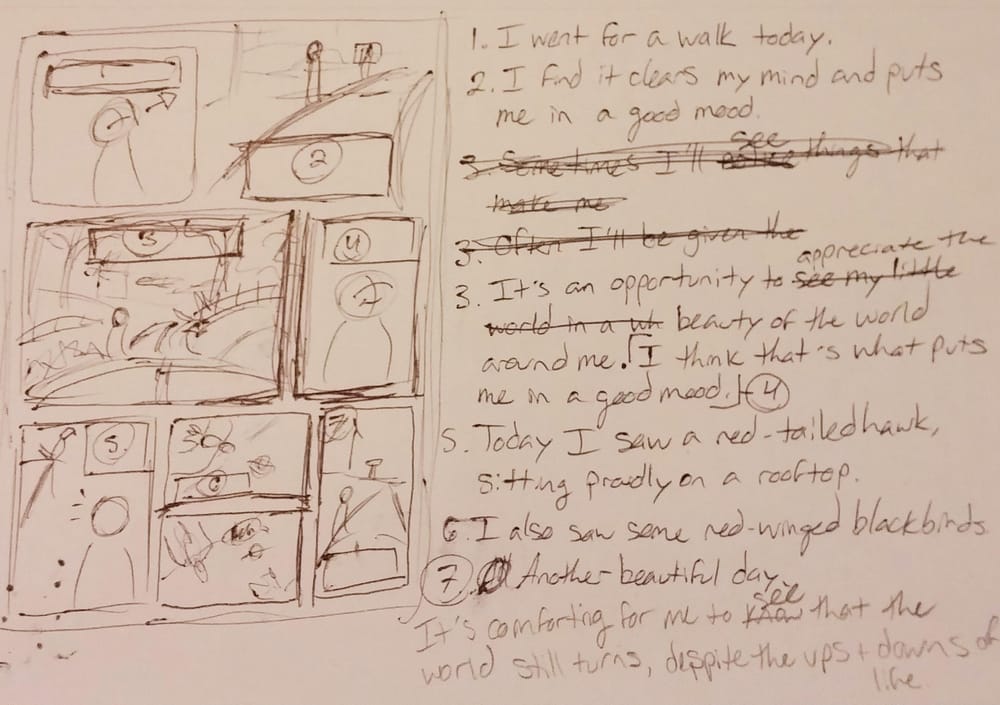 1
2
3
4
5.
6
7
1. I went for a walk today.
2. I find it clears my mind and puts
me in a good mood.
see
3. Sometimes I'll notice things that
make me
3. Often I'll be given the
appreciate the
3. It's an opportunity to see my little
world in a wh beauty of the world
around me. I think that's what puts
me in a good mood. 4
5. Today I saw a red-tailed hawk,
sitting proudly on a rooftop.
6. I also saw some red-winged blackbirds
7 Another beautiful day.
see
It's comforting for me to know that the
world still turns, despite the ups + downs of
life.